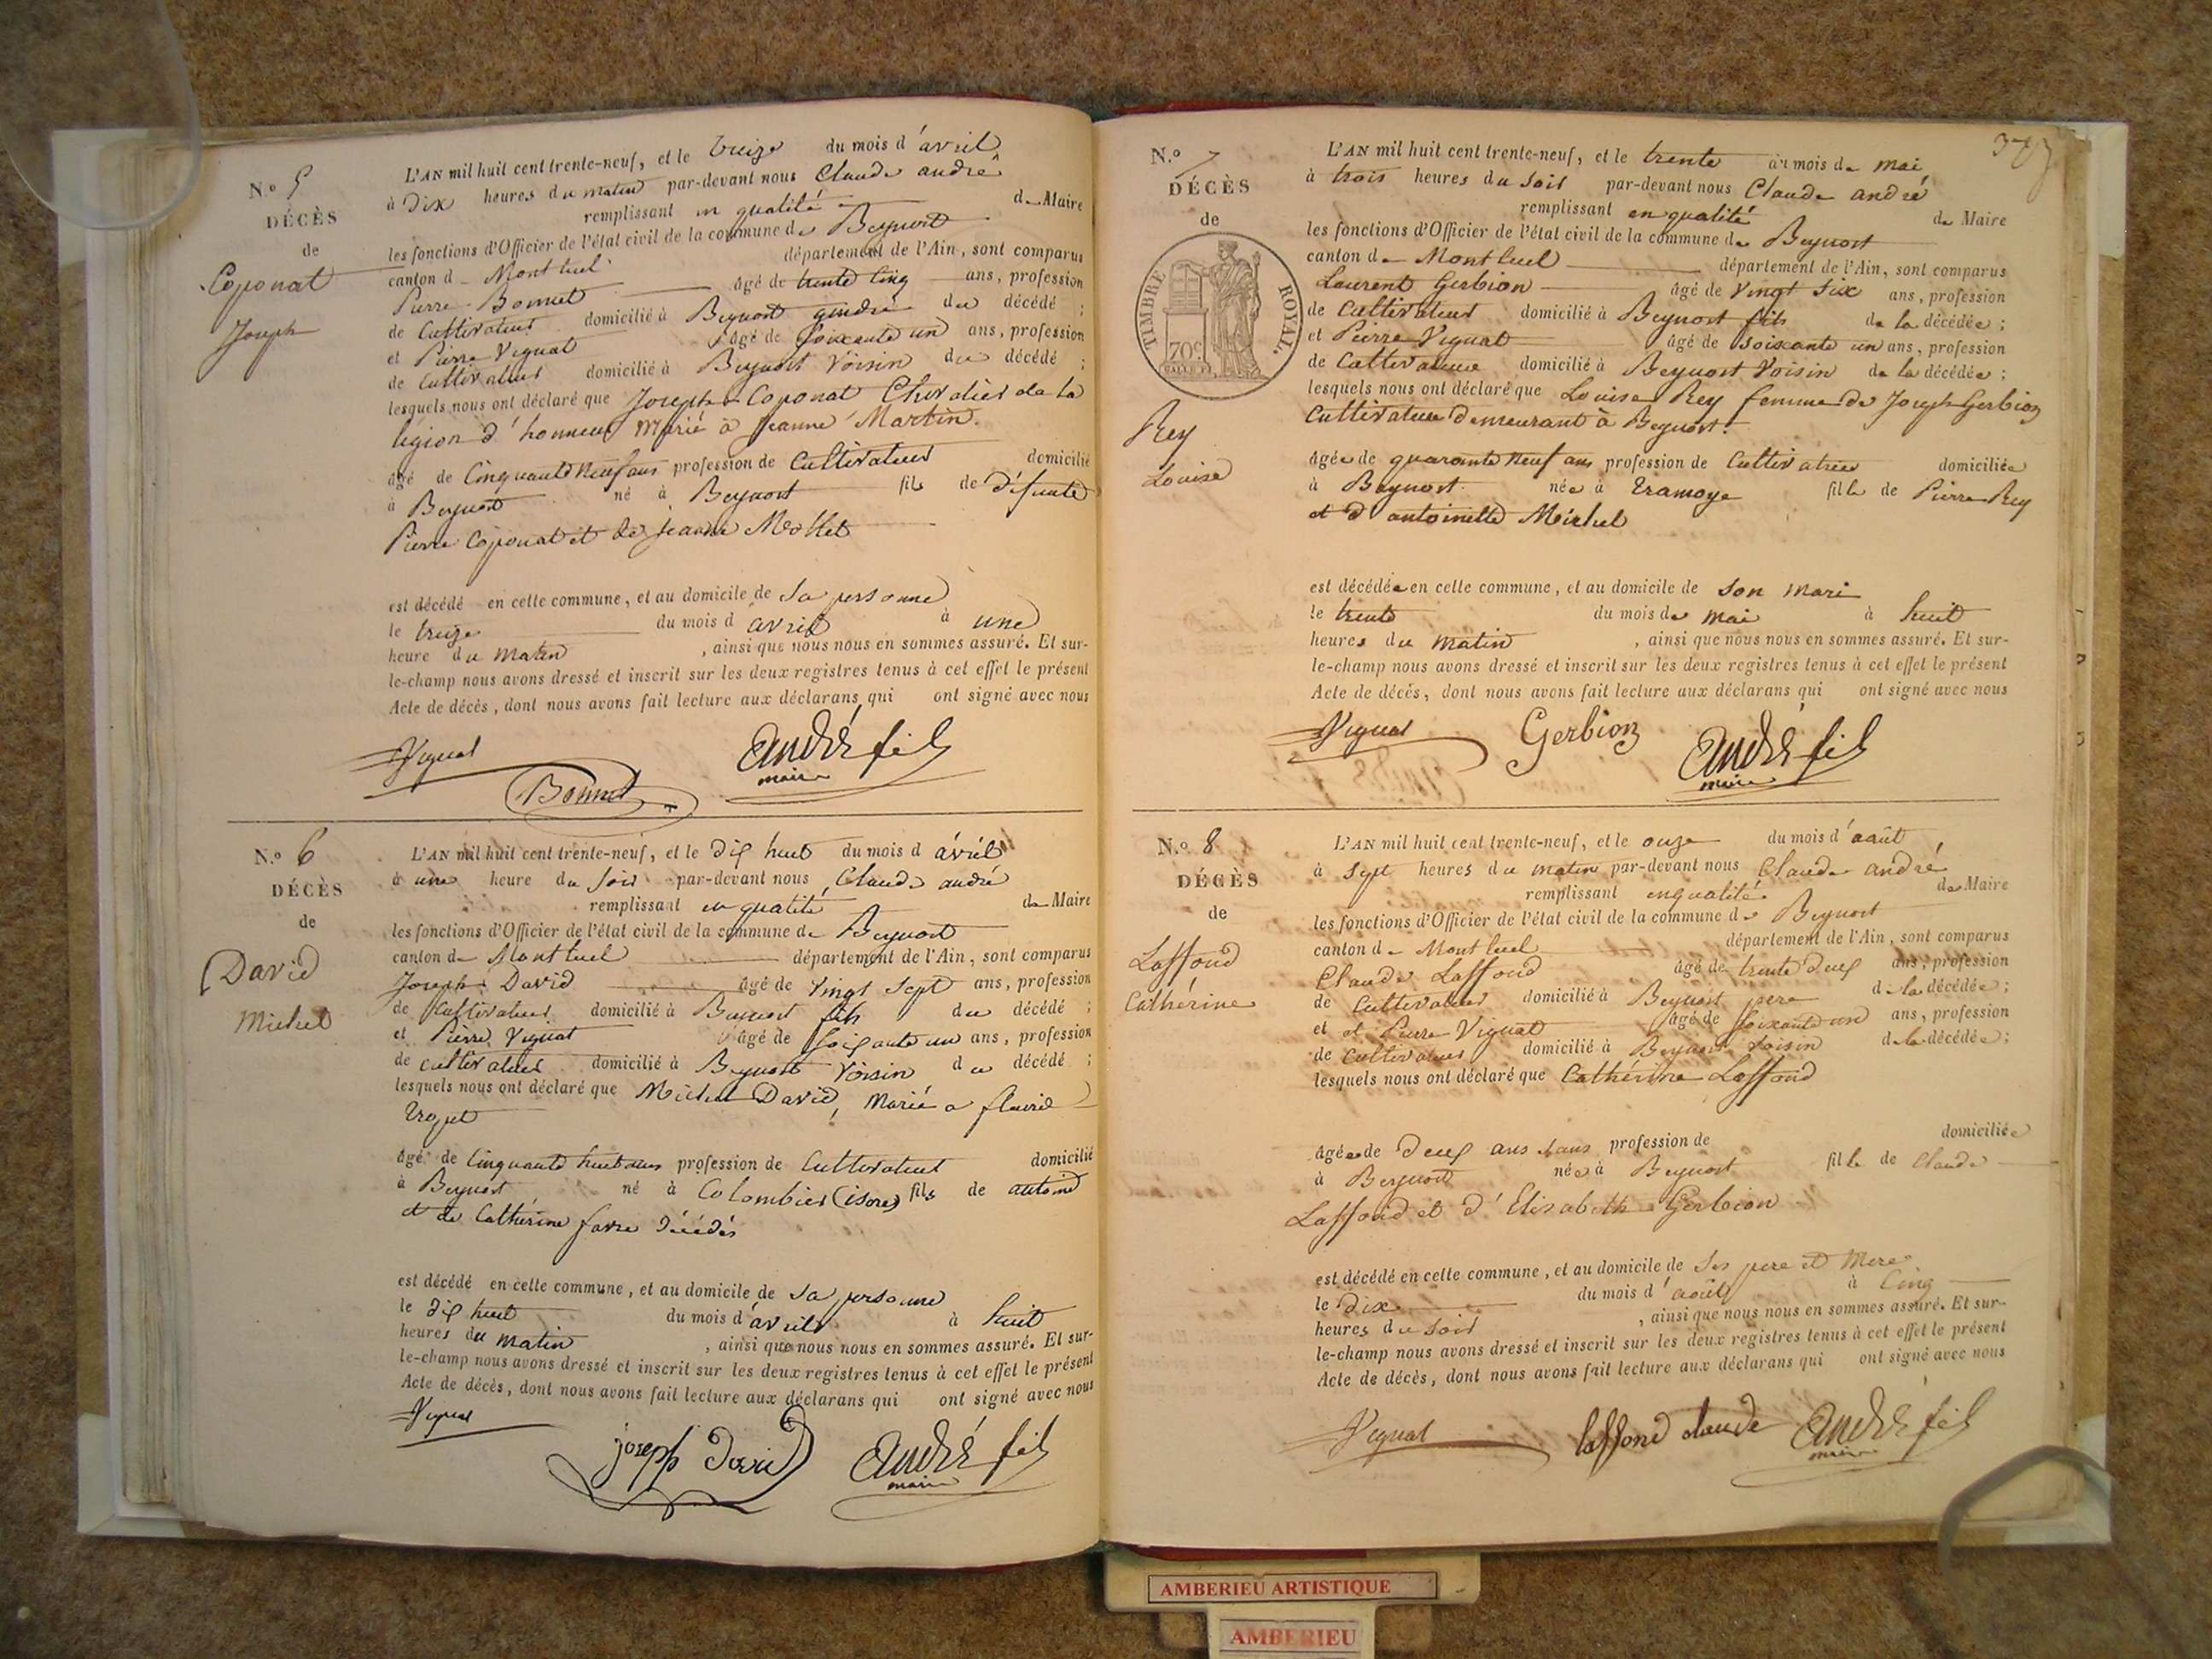 N.o 5
DÉCÈS
de
Coponat
Joseph
L'AN mil huit cent trente-neuf, et le treize du mois d'avril
à dix heures du matin par-devant nous Claude andré
remplissant en qualité de Maire
les fonctions d'Officier de l'état civil de la commune de Beynost
canton de Montluel département de l'Ain, sont comparus
Pierre Bonnet âgé de trente cinq ans, profession
de Cultivateur domicilié à Beynost gendre du décédé ;
et Pierre Vignat âgé de soixante un ans, profession
de cultivateur domicilié à Beynost Voisin du décédé ;
lesquels nous ont déclaré que Joseph Coponat Chevalier de la
légion d'honneur Marié à Jeanne Martin.
âgé de Cinquante neuf ans profession de Cultivateur domicilié
à Beynost né à Beynost fils de défunte
Pierre Coponat et de Jeanne Mollet
est décédé en cette commune, et au domicile de sa personne
le treize du mois d avril à une
heure du matin , ainsi que nous nous en sommes assuré. Et sur-
le-champ nous avons dressé et inscrit sur les deux registres tenus à cet effet le présent
Acte de décès, dont nous avons fait lecture aux déclarans qui ont signé avec nous
Vignat
Bonnet
André fils
maire
N.o 6
DÉCÈS
de
David
Michel
L'AN mil huit cent trente-neuf, et le dix huit du mois d avril
à une heure du soir par-devant nous Claude andré
remplissant en qualité de Maire
les fonctions d'Officier de l'état civil de la commune de Beynost
canton de Montluel département de l'Ain, sont comparus
Joseph David âgé de vingt sept ans, profession
de Cultivateur domicilié à Beynost fils du décédé ;
et Pierre Vignat âgé de soixante un ans, profession
de cultivateur domicilié à Beynost Voisin du décédé ;
lesquels nous ont déclaré que Michel David, Marié a
âgé de Cinquante huit ans profession de Cultivateur domicilié
à Beynost né à Colombier (isere) fils de antoine
et de Catherine favre décédés
est décédé en cette commune, et au domicile de sa personne
le dix huit du mois d'avril à huit
heures du matin , ainsi que nous nous en sommes assuré. Et sur-
le-champ nous avons dressé et inscrit sur les deux registres tenus à cet effet le présent
Acte de décès, dont nous avons fait lecture aux déclarans qui ont signé avec nous
Vignat
joseph David
André fils
maire
N.o 7
DÉCÈS
de
TIMBRE ROYAL.
70c
Rey
Louise
L'AN mil huit cent trente-neuf, et le trente du mois de mai
à trois heures du soir par-devant nous Claude andré
remplissant en qualité de Maire
les fonctions d'Officier de l'état civil de la commune de Beynost
canton de Montluel département de l'Ain, sont comparus
Laurent Gerbion âgé de vingt six ans, profession
de Cultivateur domicilié à Beynost fils de la décédée ;
et Pierre Vignat âgé de soixante un ans, profession
de Cultivateur domicilié à Beynost Voisin de la décédée ;
lesquels nous ont déclaré que Louise Rey femme de Joseph Gerbion
Cultivateur demeurant à Beynost.
âgée de quarante neuf ans profession de Cultivatrice domiciliée
à Beynost née à Tramoye fille de Pierre Rey
et d antoinette Michel
est décédée en cette commune, et au domicile de son mari
le trente du mois de mai à huit
heures du matin , ainsi que nous nous en sommes assuré. Et sur-
le-champ nous avons dressé et inscrit sur les deux registres tenus à cet effet le présent
Acte de décès, dont nous avons fait lecture aux déclarans qui ont signé avec nous
Vignat
Gerbion
André fils
maire
N.o 8
DÉCÈS
de
Laffond
Cathérine
L'AN mil huit cent trente-neuf, et le onze du mois d'août
à sept heures du matin par-devant nous Claude andré
remplissant en qualité de Maire
les fonctions d'Officier de l'état civil de la commune de Beynost
canton de Montluel département de l'Ain, sont comparus
Claude Laffond âgé de trente deux ans, profession
de Cultivateur domicilié à Beynost pere de la décédée ;
et et Pierre Vignat âgé de soixante un ans, profession
de Cultivateur domicilié à Beynost Voisin de la décédée ;
lesquels nous ont déclaré que Cathérine Laffond
âgée de deux ans sans profession de domiciliée
à Beynost née à Beynost fille de Claude
Laffond et d'Elisabeth Gerbion
est décédé en cette commune, et au domicile de ses pere et Mere
le dix du mois d'août à Cinq
heures du soir , ainsi que nous nous en sommes assuré. Et sur-
le-champ nous avons dressé et inscrit sur les deux registres tenus à cet effet le présent
Acte de décès, dont nous avons fait lecture aux déclarans qui ont signé avec nous
Vignat
laffond claude
André fils
maire
AMBERIEU ARTISTIQUE
AMBERIEU